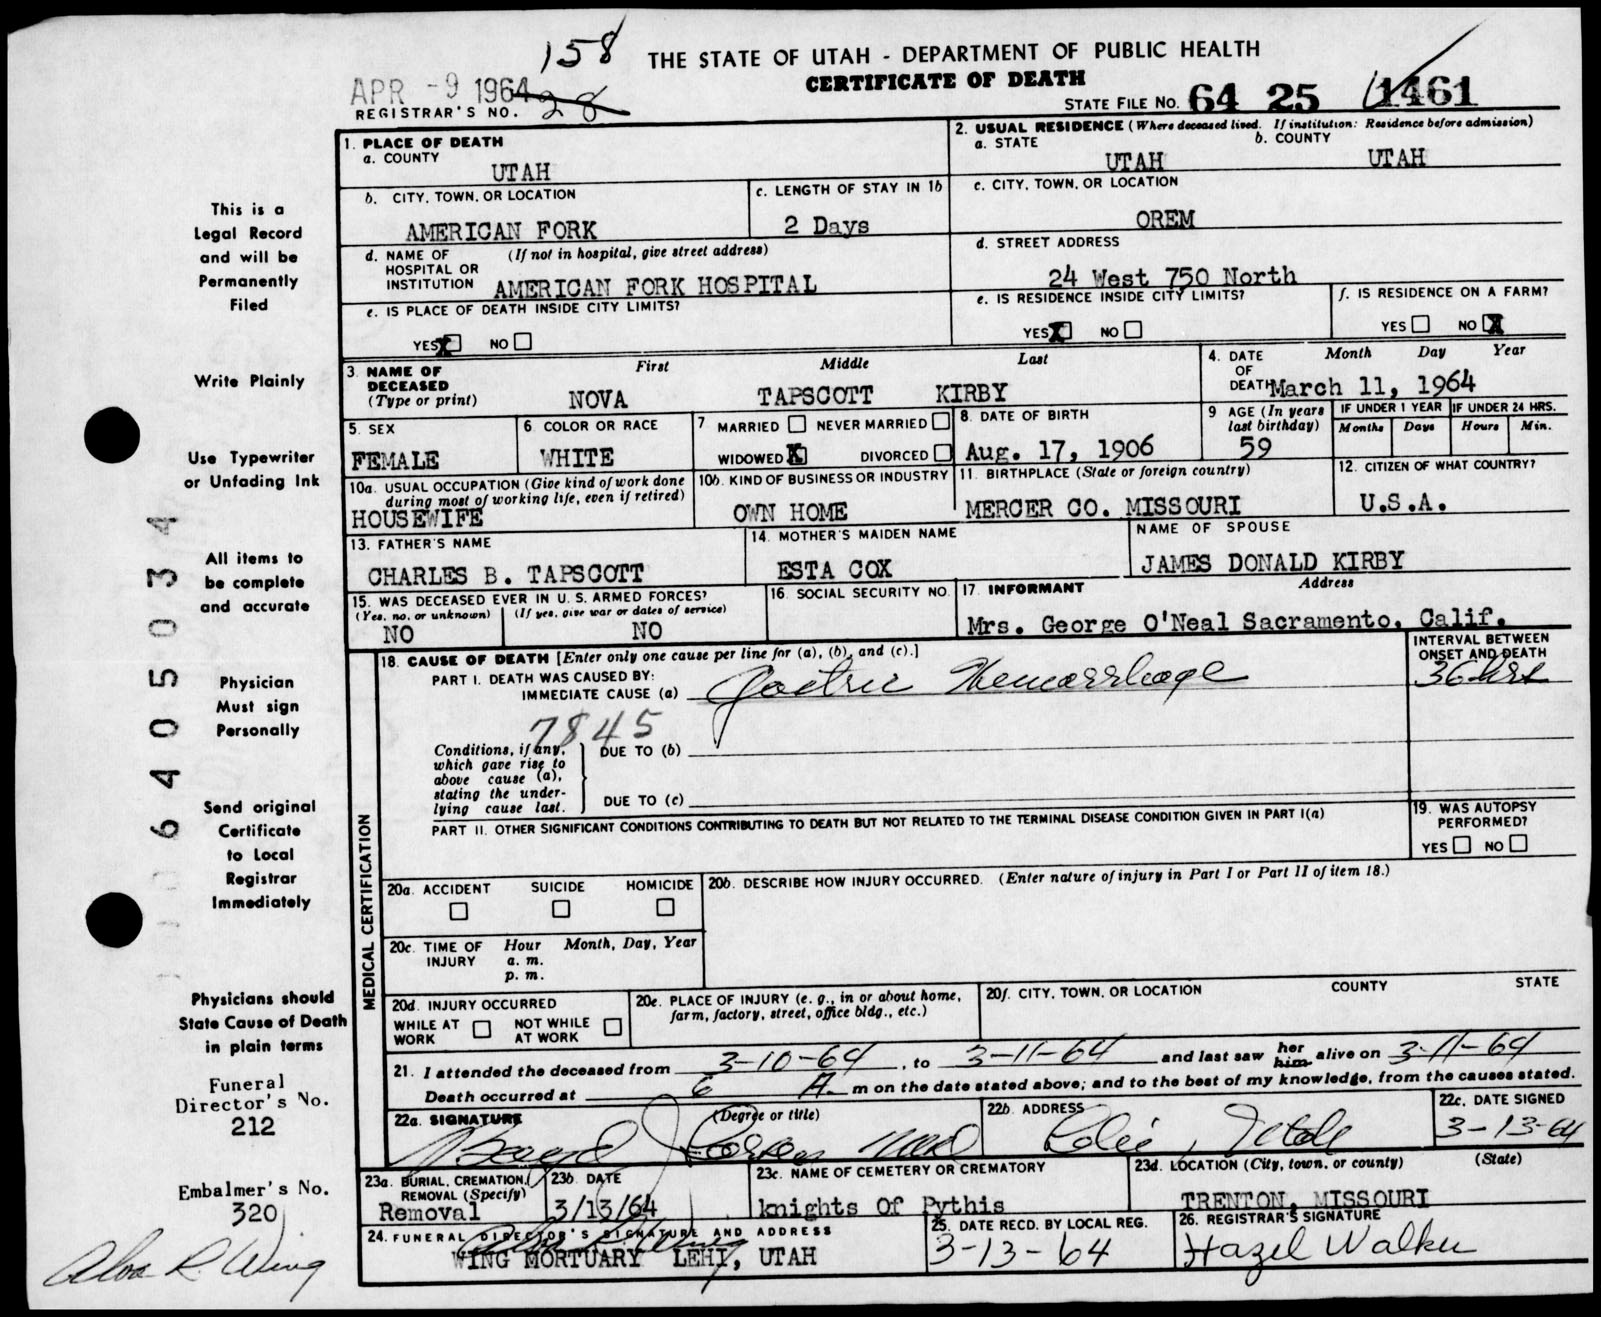 158
THE STATE OF UTAH - DEPARTMENT OF PUBLIC HEALTH
CERTIFICATE OF DEATH
APR -9 1964
REGISTRAR'S NO. 28
STATE FILE NO. 64 25 1461
1. PLACE OF DEATH
a. COUNTY
UTAH
2. USUAL RESIDENCE (Where deceased lived. If institution: Residence before admission)
a. STATE b. COUNTY
UTAH UTAH
b. CITY, TOWN, OR LOCATION
AMERICAN FORK
c. LENGTH OF STAY IN 1b
2 Days
c. CITY, TOWN, OR LOCATION
OREM
d. NAME OF HOSPITAL OR INSTITUTION (If not in hospital, give street address)
AMERICAN FORK HOSPITAL
d. STREET ADDRESS
24 West 750 North
e. IS PLACE OF DEATH INSIDE CITY LIMITS?
YES X NO
e. IS RESIDENCE INSIDE CITY LIMITS?
YES X NO
f. IS RESIDENCE ON A FARM?
YES NO X
3. NAME OF DECEASED (Type or print)
First Middle Last
NOVA TAPSCOTT KIRBY
4. DATE OF DEATH
Month Day Year
March 11, 1964
5. SEX
FEMALE
6. COLOR OR RACE
WHITE
7 MARRIED NEVER MARRIED
WIDOWED X DIVORCED
8. DATE OF BIRTH
Aug. 17, 1906
9 AGE (In years last birthday)
59
IF UNDER 1 YEAR
Months Days
IF UNDER 24 HRS.
Hours Min.
10a. USUAL OCCUPATION (Give kind of work done during most of working life, even if retired)
HOUSEWIFE
10b. KIND OF BUSINESS OR INDUSTRY
OWN HOME
11. BIRTHPLACE (State or foreign country)
MERCER CO. MISSOURI
12. CITIZEN OF WHAT COUNTRY?
U.S.A.
13. FATHER'S NAME
CHARLES B. TAPSCOTT
14. MOTHER'S MAIDEN NAME
ESTA COX
NAME OF SPOUSE
JAMES DONALD KIRBY
15. WAS DECEASED EVER IN U.S. ARMED FORCES?
(Yes, no, or unknown) (If yes, give war or dates of service)
NO NO
16. SOCIAL SECURITY NO.
17. INFORMANT Address
Mrs. George O'Neal Sacramento, Calif.
MEDICAL CERTIFICATION
18. CAUSE OF DEATH [Enter only one cause per line for (a), (b), and (c).]
INTERVAL BETWEEN ONSET AND DEATH
PART I. DEATH WAS CAUSED BY:
IMMEDIATE CAUSE (a) Gastric Hemorrhage
36 hrs
7845
Conditions, if any, which gave rise to above cause (a), stating the underlying cause last.
DUE TO (b)
DUE TO (c)
PART II. OTHER SIGNIFICANT CONDITIONS CONTRIBUTING TO DEATH BUT NOT RELATED TO THE TERMINAL DISEASE CONDITION GIVEN IN PART I(a)
19. WAS AUTOPSY PERFORMED?
YES NO
20a. ACCIDENT SUICIDE HOMICIDE
20b. DESCRIBE HOW INJURY OCCURRED. (Enter nature of injury in Part I or Part II of item 18.)
20c. TIME OF INJURY Hour Month, Day, Year
a. m.
p. m.
20d. INJURY OCCURRED
WHILE AT WORK NOT WHILE AT WORK
20e. PLACE OF INJURY (e. g., in or about home, farm, factory, street, office bldg., etc.)
20f. CITY, TOWN, OR LOCATION COUNTY STATE
21. I attended the deceased from 3-10-64, to 3-11-64 and last saw her him alive on 3-11-64
Death occurred at 6 A. m on the date stated above; and to the best of my knowledge, from the causes stated.
22a. SIGNATURE (Degree or title)
Boyd J Larson
22b. ADDRESS
Utah
22c. DATE SIGNED
3-13-64
23a. BURIAL, CREMATION, REMOVAL (Specify)
Removal
23b. DATE
3/13/64
23c. NAME OF CEMETERY OR CREMATORY
knights Of Pythis
23d. LOCATION (City, town, or county) (State)
TRENTON, MISSOURI
24. FUNERAL DIRECTOR'S SIGNATURE AND ADDRESS
Alva R. Wing
WING MORTUARY LEHI, UTAH
25. DATE RECD. BY LOCAL REG.
3-13-64
26. REGISTRAR'S SIGNATURE
Hazel Walker
This is a
Legal Record
and will be
Permanently
Filed
Write Plainly
Use Typewriter
or Unfading Ink
All items to
be complete
and accurate
Physician
Must sign
Personally
Send original
Certificate
to Local
Registrar
Immediately
Physicians should
State Cause of Death
in plain terms
Funeral
Director's No.
212
Embalmer's No.
320
Alva R. Wing
06405034